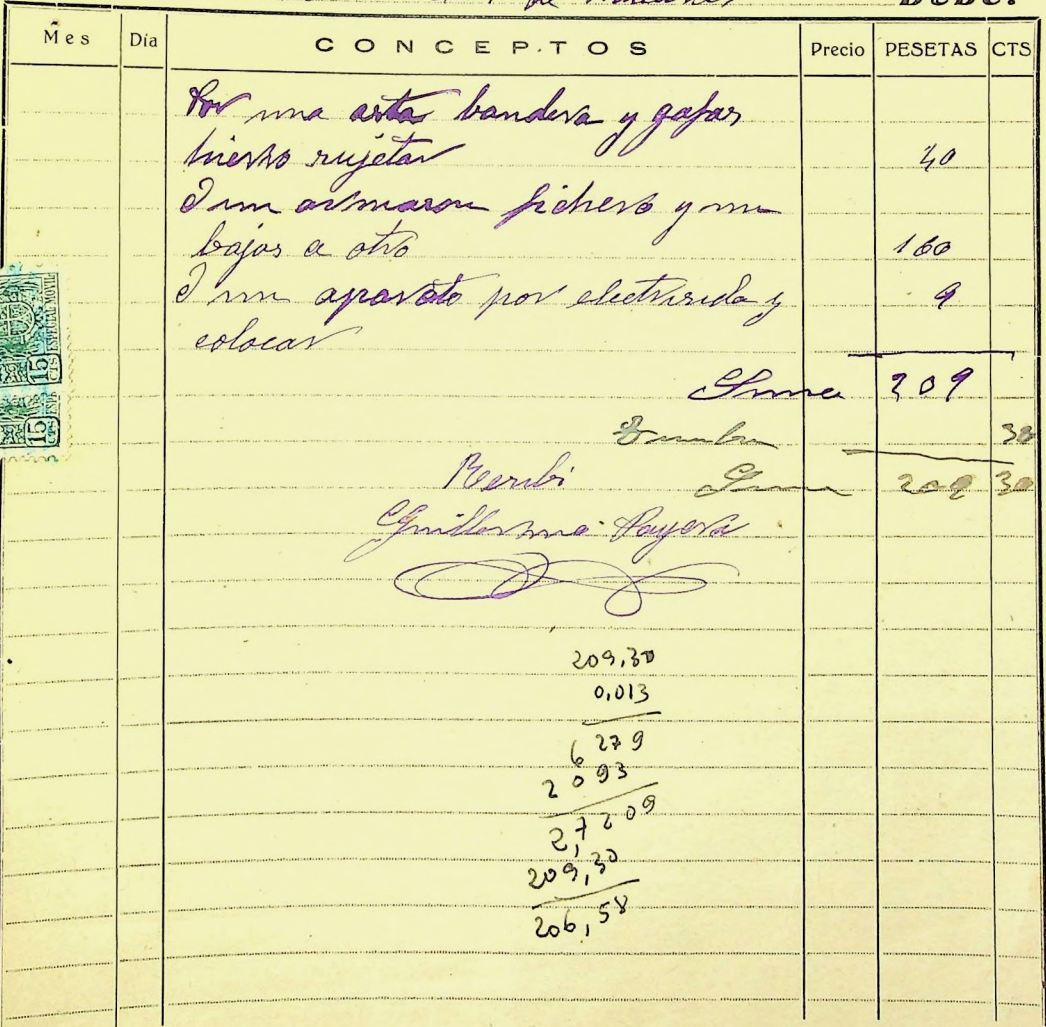 de
DEBE.
Mes Día CONCEPTOS Precio PESETAS CTS
Por una asta bandera y gafas
hierro sujetar 40
I un armason fichero y un
bajos a otro 160
I un aparato por electrisida y 9
colocar
Suma 209
Timbre 30
Suma 209 30
Recibi
Guillermo Payera
15 CTS ESPECIAL MOVIL
15 CTS
209,30
0,013
6 279
2 093
2,7209
209,30
206,58